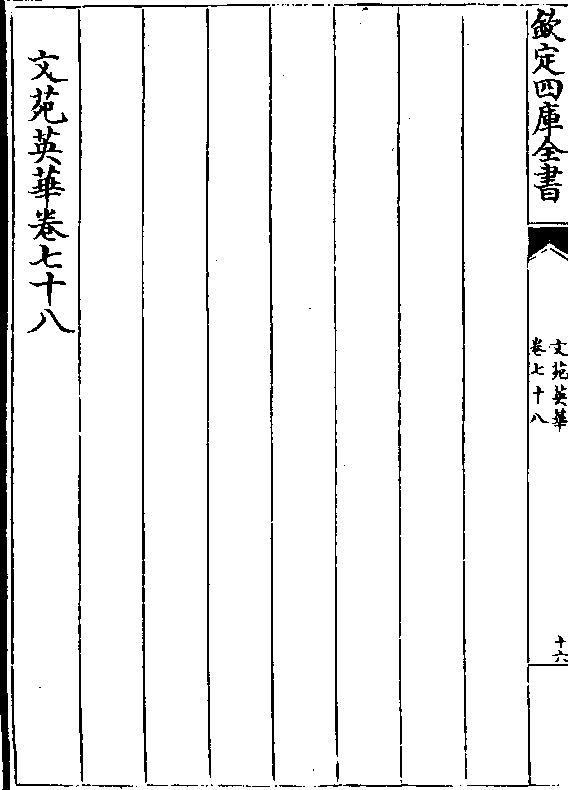 欽定四庫全書
文苑英華
卷七十八
十六
文苑英華卷七十八